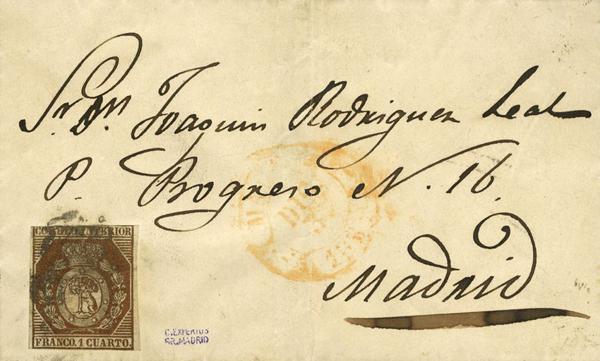 Sr. Dn. Joaquin Rodriguez Leal
P. Progreso N. 16.
Madrid
FRANCO. 1 CUARTO.
C. EXPERTOS
GR. MADRID